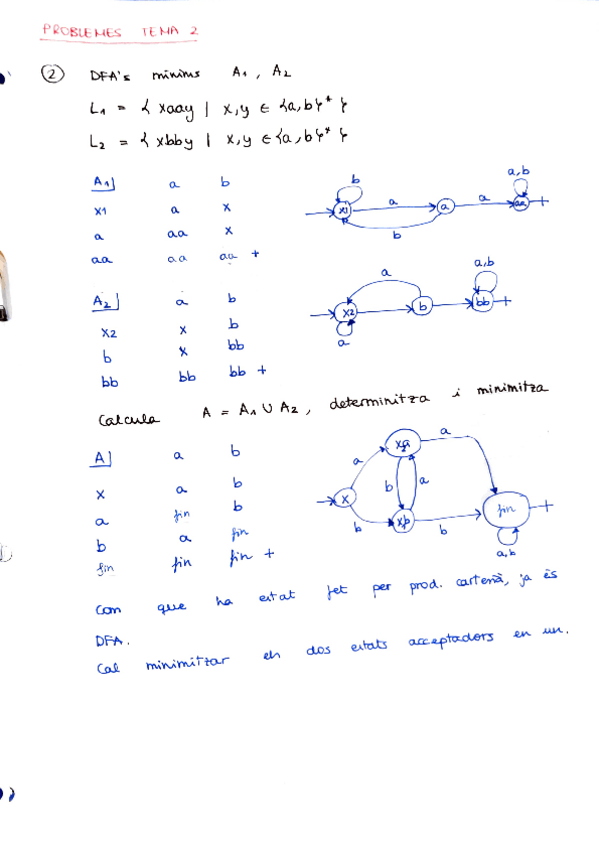 PROBLEMES TEMA 2
② DFA's mínims A1, A2
L1 = { xaay | x,y ∈ {a,b}* }
L2 = { xbby | x,y ∈ {a,b}* }
A1] a b
x1 a x
a aa x
aa aa aa +
b
x1 a a a aa +
a,b
b
A2] a b
x2 x b
b x bb
bb bb bb +
a
x2 b bb +
a,b
a
Calcula A = A1 ∪ A2, determinitza i minimitza
A] a b
x a b
a fin b
b a fin
fin fin fin +
a
a
x b a fin +
b b
a,b
Com que ha estat fet per prod. cartesià, ja és
DFA.
Cal minimitzar els dos estats acceptadors en un.